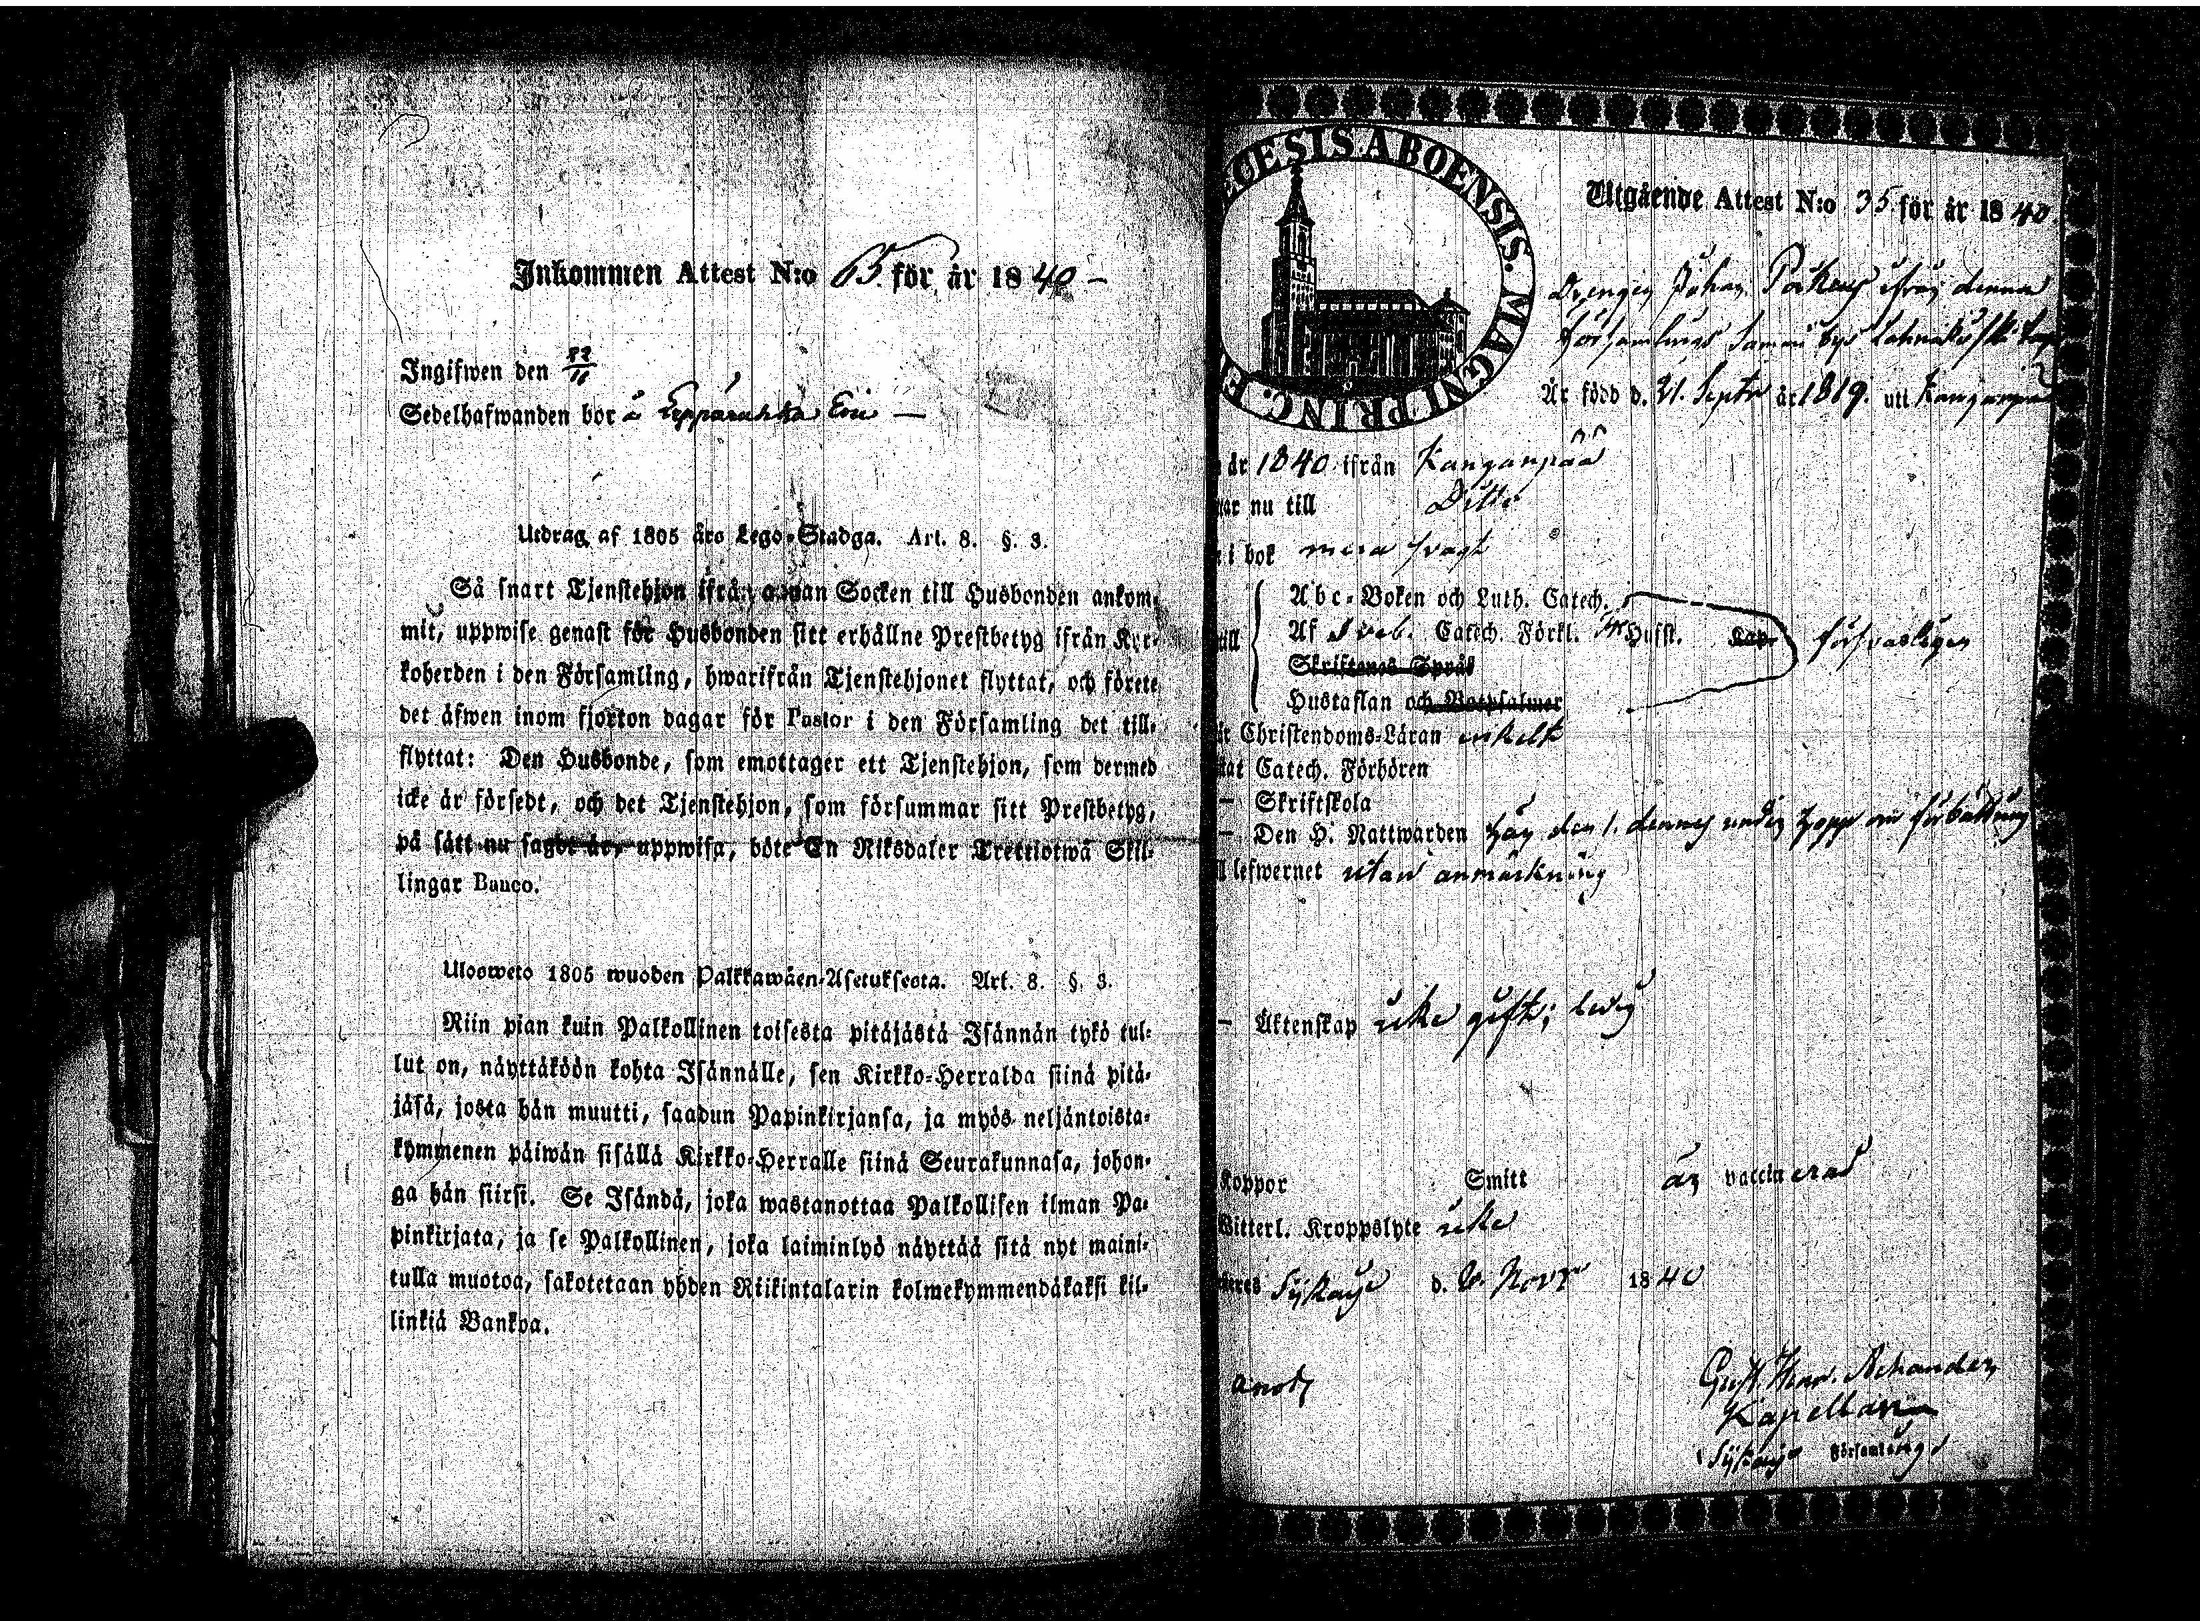 Inkommen Attest N:o 65. för år 1840 –
Ingifwen den 22/11
Sedelhafwanden bor å Erie —
Utdrag af 1805 års Lego-Stadga. Art. 8. §. 3.
Så snart Tjenstehjon ifrån annan Socken till Husbonden ankom-
mit, uppwise genast för Husbonden sitt erhållne Prestbetyg ifrån Kyr-
koherden i den Församling, hwarifrån Tjenstehjonet flyttat, och förete
det äfwen inom fjorton dagar för Pastor i den Församling det till-
flyttat: Den Husbonde, som emottager ett Tjenstehjon, som dermed
icke är försedt, och det Tjenstehjon, som försummar sitt Prestbetyg,
på sätt nu sagdt är, uppwisa, böte En Riksdaler Trettiotwå Skil-
lingar Banco.
Ulosweto 1805 wuoden Palkkawäen-Asetuksesta. Art. 8. §. 3.
Niin pian kuin Palkollinen toisesta pitäjästä Isännän tykö tul-
lut on, näyttäköön kohta Isännälle, sen Kirkko-Herralda siinä pitä-
jäsä, josta hän muutti, saadun Papinkirjansa, ja myös neljäntoista-
kymmenen päiwän sisällä Kirkko-Herralle siinä Seurakunnasa, johon-
ga hän siirsi. Se Isändä, joka wastanottaa Palkollisen ilman Pa-
pinkirjata, ja se Palkollinen, joka laiminlyö näyttää sitä nyt maini-
tulla muotoa, sakotetaan yhden Riikintalarin kolmekymmendäkaksi kil-
linkiä Bankoa.
ECESIS ABOENSIS. MAGNI PRINC. F
Utgående Attest N:o 35 för år 1840
Drengen Johan ifrån denna
Församlings Sammi bys
Är född d. 21. Septr år 1819. uti Kanganpää
år 1840 ifrån Kanganpää
nu till Ditto
i bok mera svagt
Abc-Boken och Luth. Catech.
Af Sveb. Catech. Förkl. Hufst. Kap. försvarligen
Skriftenes Språk
Hustaflan och Botpsalmer
Christendoms-Läran enkelt
Catech. Förhören
– Skriftskola
– Den H. Nattwarden den 1. dennes under hopp om förbättring
lefwernet utan anmärkning
– Äktenskap icke gift; ledig
Koppor Smitt är vaccinerad
Witterl. Kroppslyte icke
d. 6. Novr 1840
Gust.
Kapellan
Församlings